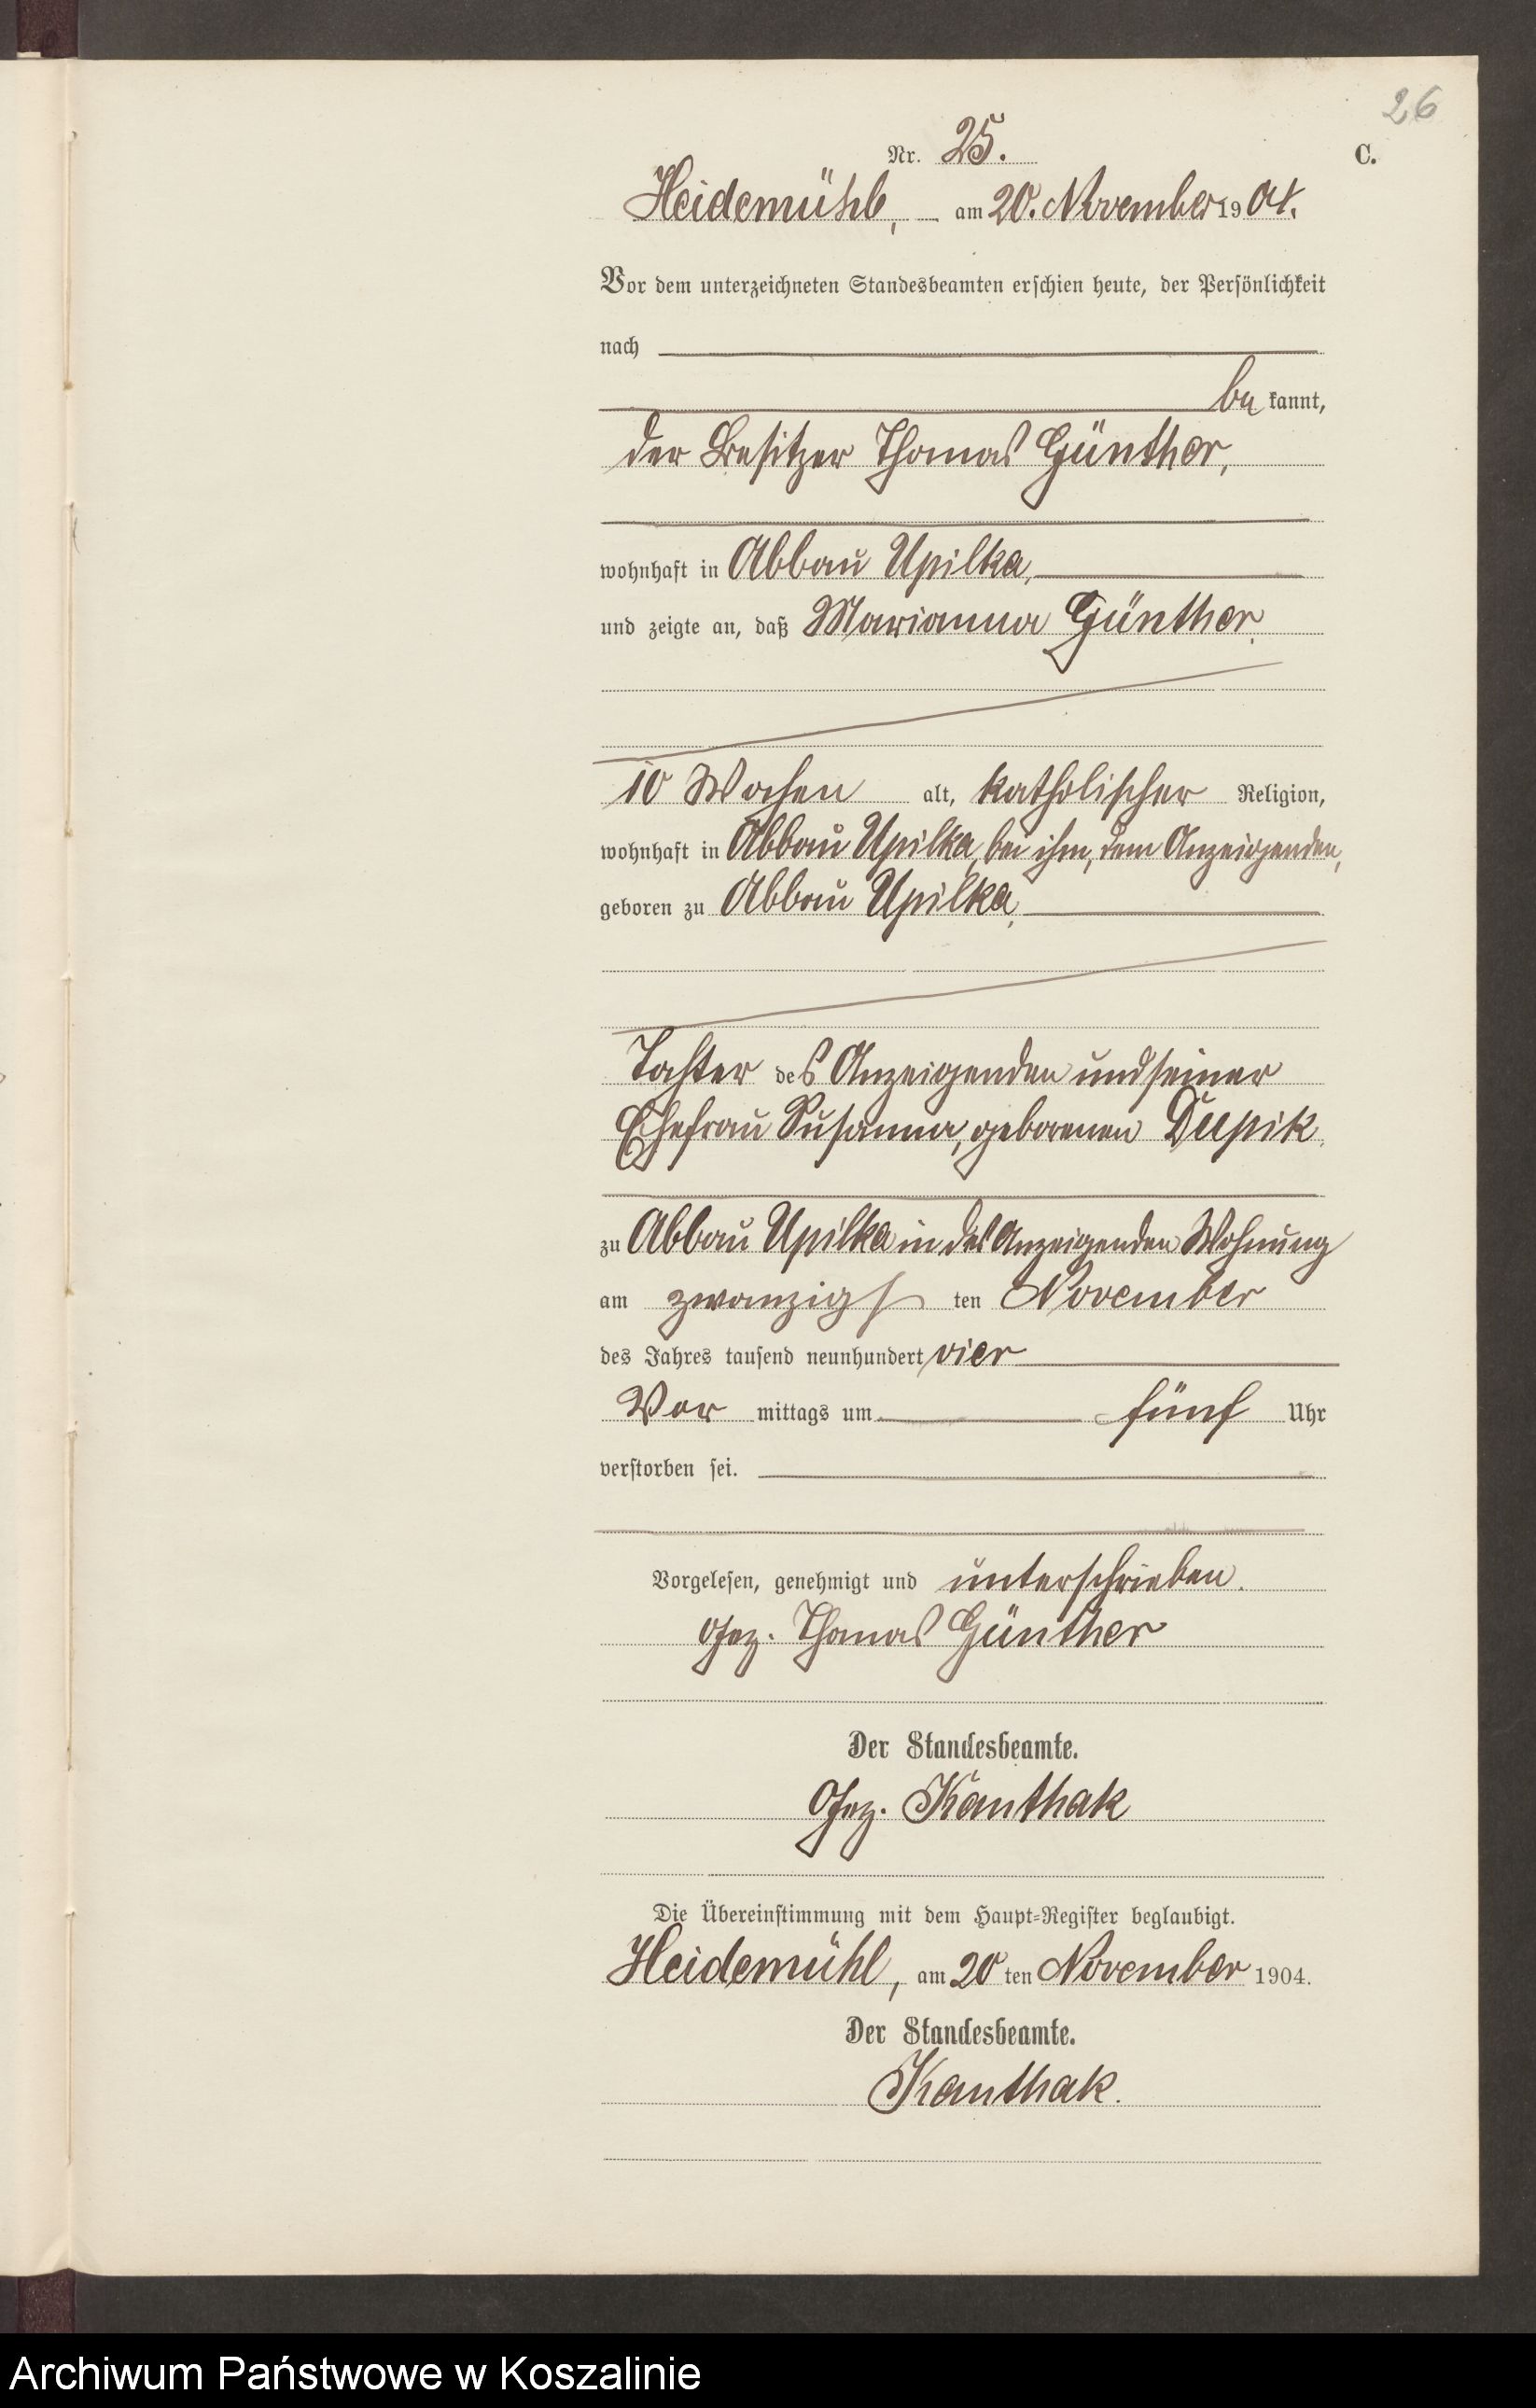 26
Nr. 25.
C.
Heidemühl, am 20. November 1904.
Vor dem unterzeichneten Standesbeamten erschien heute, der Persönlichkeit
nach
be kannt,
der Besitzer Thomas Günther,
wohnhaft in Abbau Upilka,
und zeigte an, daß Marianna Günther,
10 Wochen alt, katholischer Religion,
wohnhaft in Abbau Upilka, bei ihm, dem Anzeigenden,
geboren zu Abbau Upilka,
Tochter des Anzeigenden und seiner
Ehefrau Susanna, geborenen Dupik,
zu Abbau Upilka in des Anzeigenden Wohnung
am zwanzigsten November
des Jahres tausend neunhundert vier
Vor mittags um fünf Uhr
verstorben sei.
Vorgelesen, genehmigt und unterschrieben.
Gez. Thomas Günther
Der Standesbeamte.
Gez. Kanthak
Die Übereinstimmung mit dem Haupt-Register beglaubigt.
Heidemühl, am 20 ten November 1904.
Der Standesbeamte.
Kanthak.
Archiwum Państwowe w Koszalinie